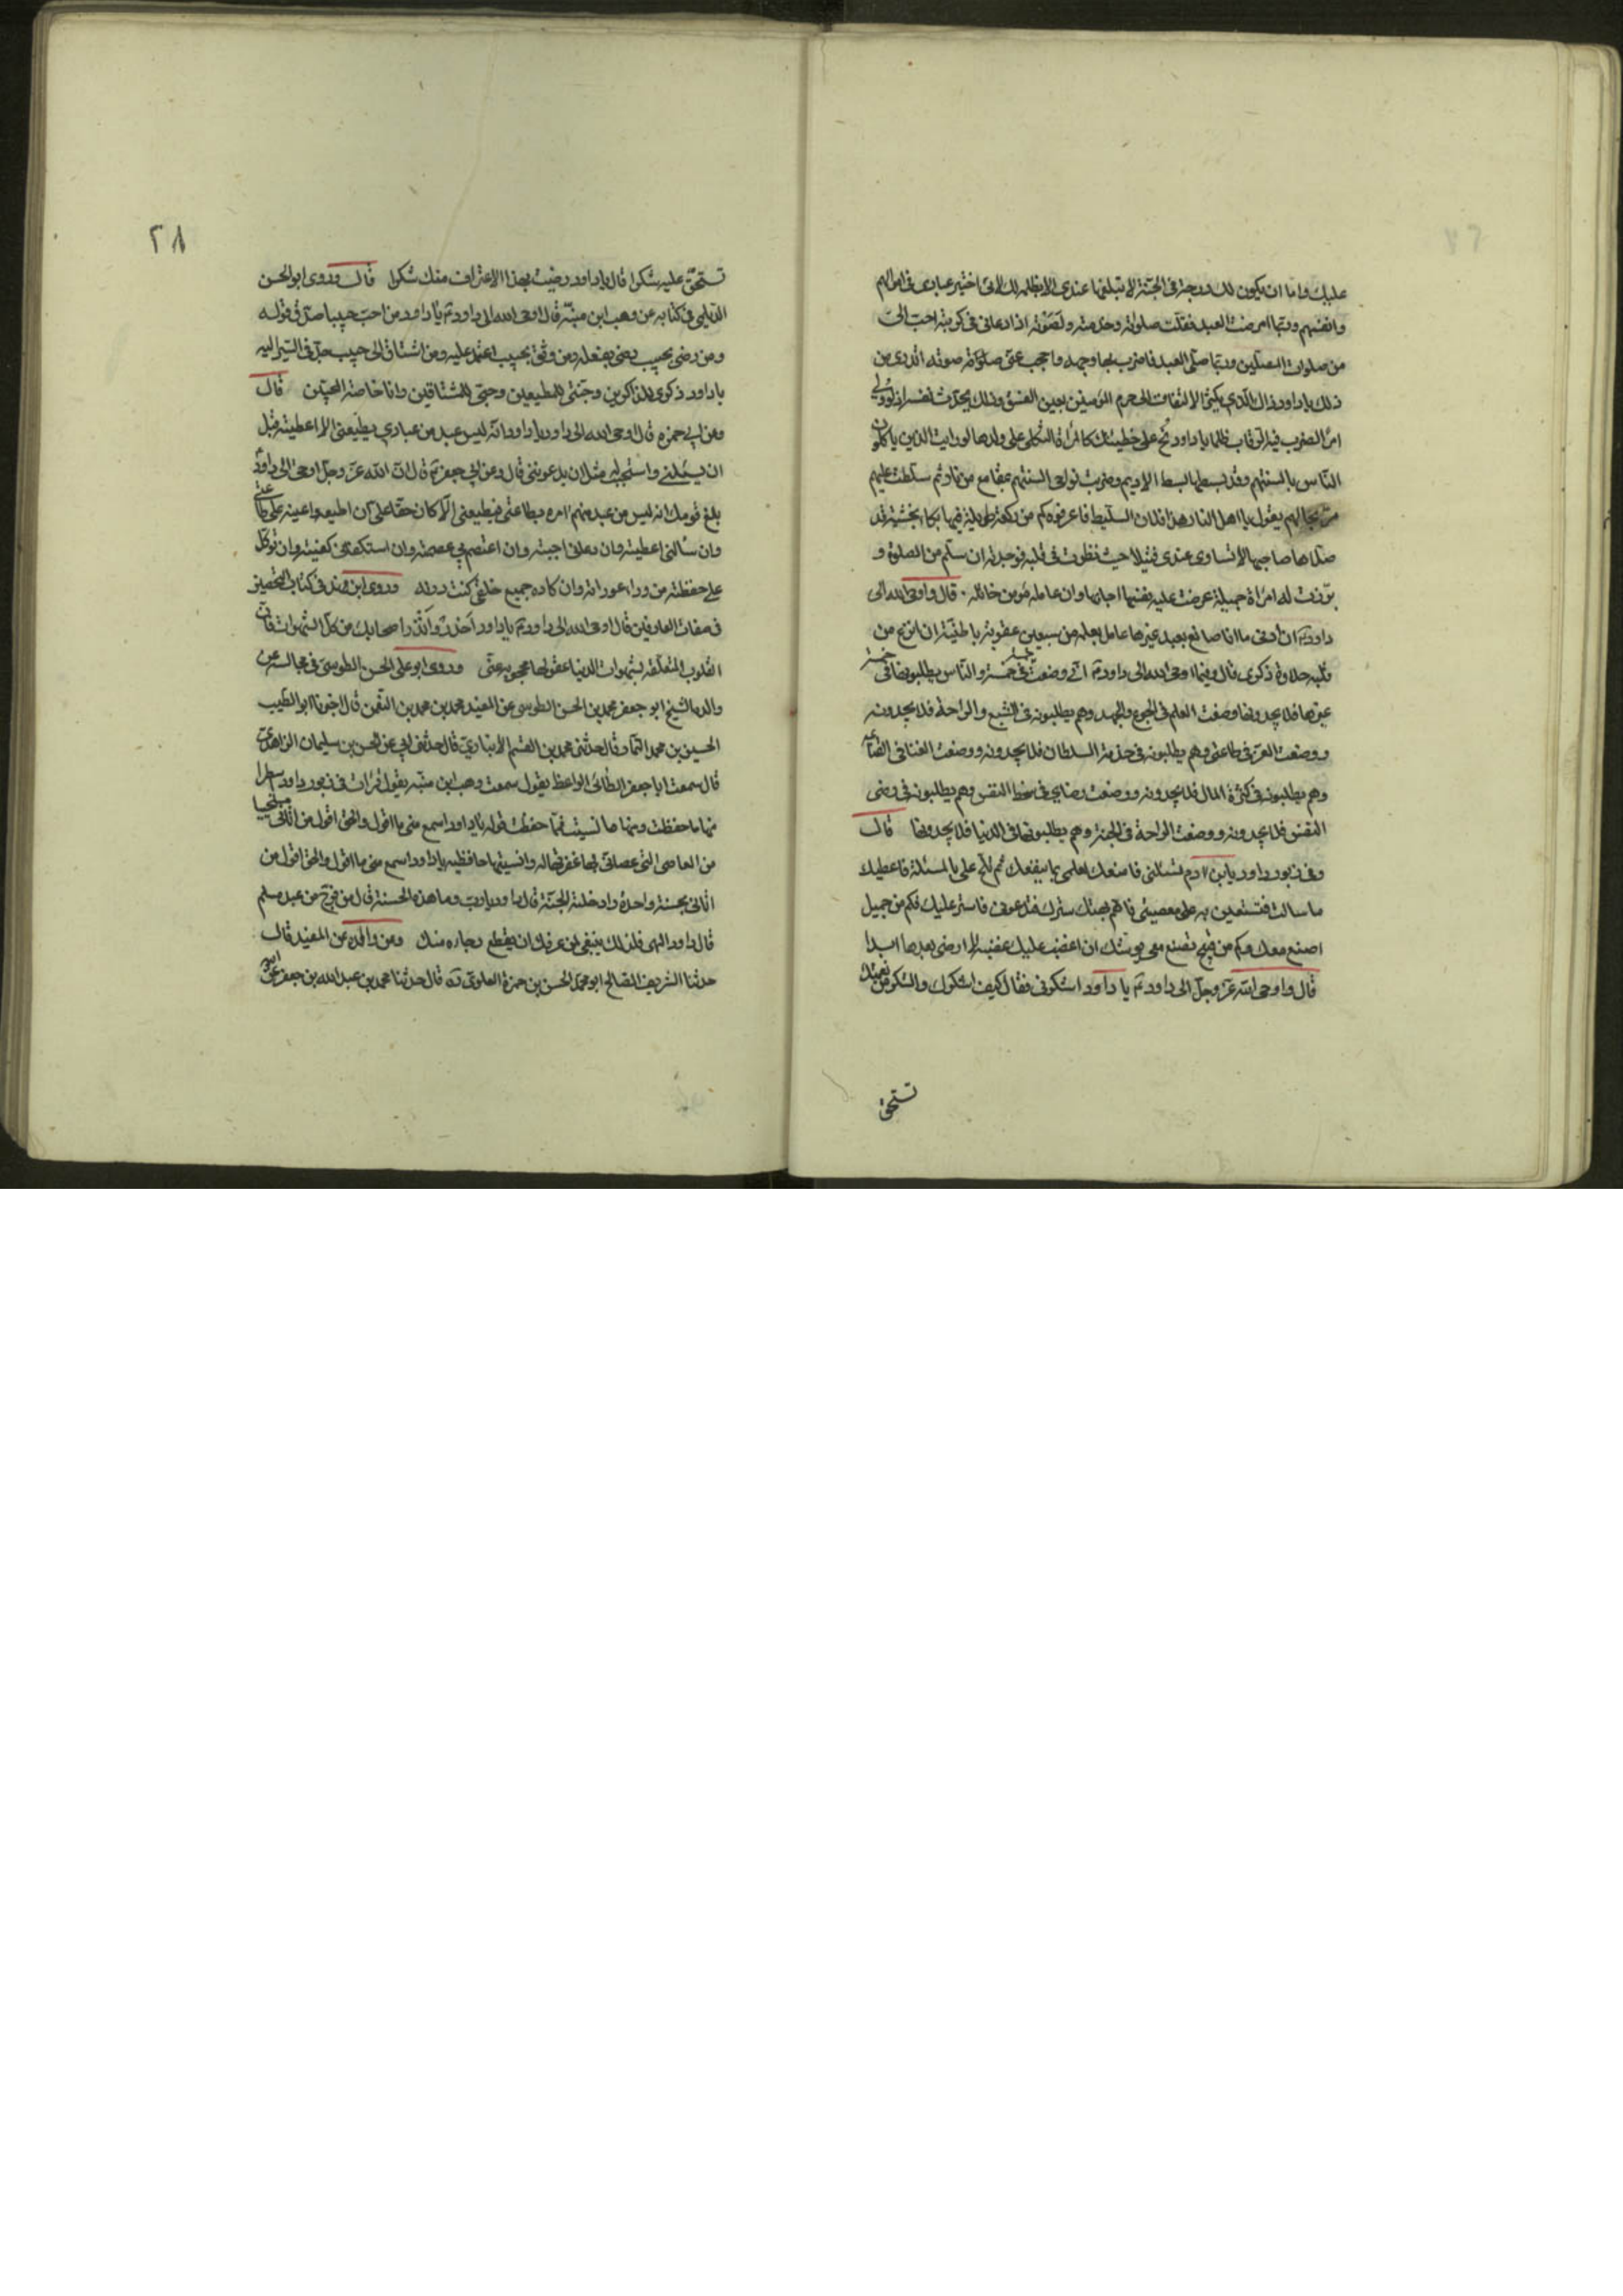 عليك واما ان يكون لك درجة في الجنة لا تبلغها عندي الا بظلمه لك لاني اختبر عبادي في اموالهم
وانفسهم وربما امرضت العبد فقلت صلوته وخدمته ولصوته اذا دعاني في كربته احب الي
من صلوات المصلين وربما صلى العبد فاضرب بها وجهه واحجب عني صلوته صوته اتدري من
ذلك يا داود ذاك الذي يكثر الالتفات الى حرم المؤمنين بعين الفسق وذلك يحدث نفسه ان لو ولي
امرا لضرب فيه الرقاب ظلما يا داود نح على خطيئتك كالمراة الثكلى على ولدها لو رايت الذين ياكلون
الناس بالسنتهم وقد بسطها بسط الاديم وضربت نواحي السنتهم بمقامع من نار ثم سلطت عليهم
يقول يا اهل النار هذا فلان السليط فاعرفوه كم من ركعة طويلة فيها بكاء بخشية قد
صلاها صاحبها لا تساوي عندي فتيلا حيث نظرت في قلبه فوجدته ان سلم من الصلوة و
برزت له امراة جميلة عرضت عليه بنفسها اجابها وان عامله مؤمن خانله قال واوحى الله الى
داود ان ادنى ما انا صانع بعبد غير عامل بعلمه من سبعين عقوبة باطنية ان انزع من
قلبه حلاوة ذكري قال وفيما اوحى الله الى داود اني وضعت خمسة في خمسة والناس يطلبونها في خمسة
غيرها فلا يجدونها وضعت العلم في الجوع والجهد وهم يطلبونه في الشبع والراحة فلا يجدونه
ووضعت العز في طاعتي وهم يطلبونه في خدمة السلطان فلا يجدونه ووضعت الغنا في القناعة
وهم يطلبونه في كثرة المال فلا يجدونه ووضعت رضاي في سخط النفس وهم يطلبونه في رضى
النفس فلا يجدونه ووضعت الراحة في الجنة وهم يطلبونها في الدنيا فلا يجدونها قال
وفي زبور داود يابن ادم تسئلني فامنعك لعلمي بما ينفعك ثم تلح علي بالمسئلة فاعطيك
ما سالت فتستعين به على معصيتي فاهم بهتك سترك فتدعوني فاستر عليك فكم من جميل
اصنع معك وكم من قبيح تصنع معي يوشك ان اغضب عليك غضبة لا ارضى بعدها ابدا
قال واوحى الله عز وجل الى داود يا داود اشكرني فقال كيف اشكرك والشكر من نعمتك
تستحق
٢٨
تستحق عليه شكرا قال يا داود رضيت بهذا الاعتراف منك شكرا قال وروى ابو الحسن
الديلمي في كتابه عن وهب ابن منبه قال اوحى الله الى داود يا داود من احب حبيبا صدق قوله
ومن رضى بحبيب رضى بفعله ومن وثق بحبيب اعتمد عليه ومن اشتاق الى حبيب جد في السير اليه
يا داود ذكري للذاكرين وجنتي للمطيعين وحبي للمشتاقين وانا خاصة المحبين قال
وعن ابي حمزه قال اوحى الله الى داود يا داود انه ليس عبد من عبادي يطيعني الا اعطيته قبل
ان يسئلني واستجبت له مثل ان يدعوني قال وعن ابي جعفر قال ان الله عز وجل اوحى الى داود
بلغ قومك انه ليس من عبد منهم امره بطاعتي فيطيعني الا كان حقا علي ان اطيعه واعينه على طاعتي
وان سالني اعطيته وان دعاني اجبته وان اعتصم بي عصمته وان استكفاني كفيته وان توكل
علي حفظته من وراء عوراته وان كاده جميع خلقي كنت دونه وروى ابن فهد في كتاب التحصين
في صفات العارفين قال اوحى الله الى داود يا داود احذر وانذر اصحابك من كل الشهوات فان
القلوب المتعلقة بشهوات الدنيا عقولها محجوبة عني وروى ابو علي الحسن الطوسي في مجالسه عن
والده الشيخ ابو جعفر محمد بن الحسن الطوسي عن المفيد محمد بن محمد بن النعمن قال اخبرنا ابو الطيب
الحسين بن محمد التمار قال حدثني محمد بن القسم الانباري قال حدثني ابي عن الحسن بن سليمان الزاهد
قال سمعت ابا جعفر الطائي الواعظ يقول سمعت وهب ابن منبه يقول قرات في زبور داود اسطرا
منها ما حفظت ومنها ما نسيت فما حفظت قوله يا داود اسمع مني ما اقول والحق اقول من اتاني مستحييا
من المعاصي التي عصاني بها غفرتها له وانسيتها حافظيه يا داود اسمع مني ما اقول والحق اقول من
اتاني بحسنة واحدة ادخلته الجنة قال داود يا رب وما هذه الحسنة قال من فرج من عبد مسلم
قال داود الهي فلذلك ينبغي لمن عرفك ان لا يقطع رجاءه منك وعن والده عن المفيد قال
حدثنا الشريف الصالح ابو محمد الحسن بن حمزة العلوي قال حدثنا محمد بن عبد الله بن جعفر عن ابيه